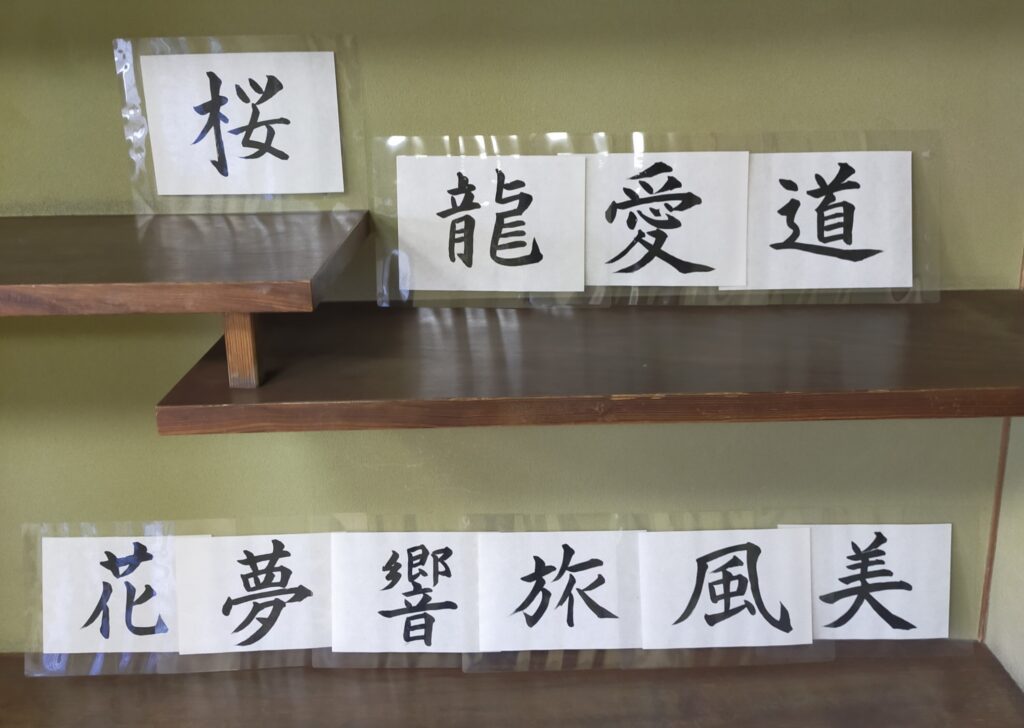 桜
龍 愛 道
花 夢 響 旅 風 美